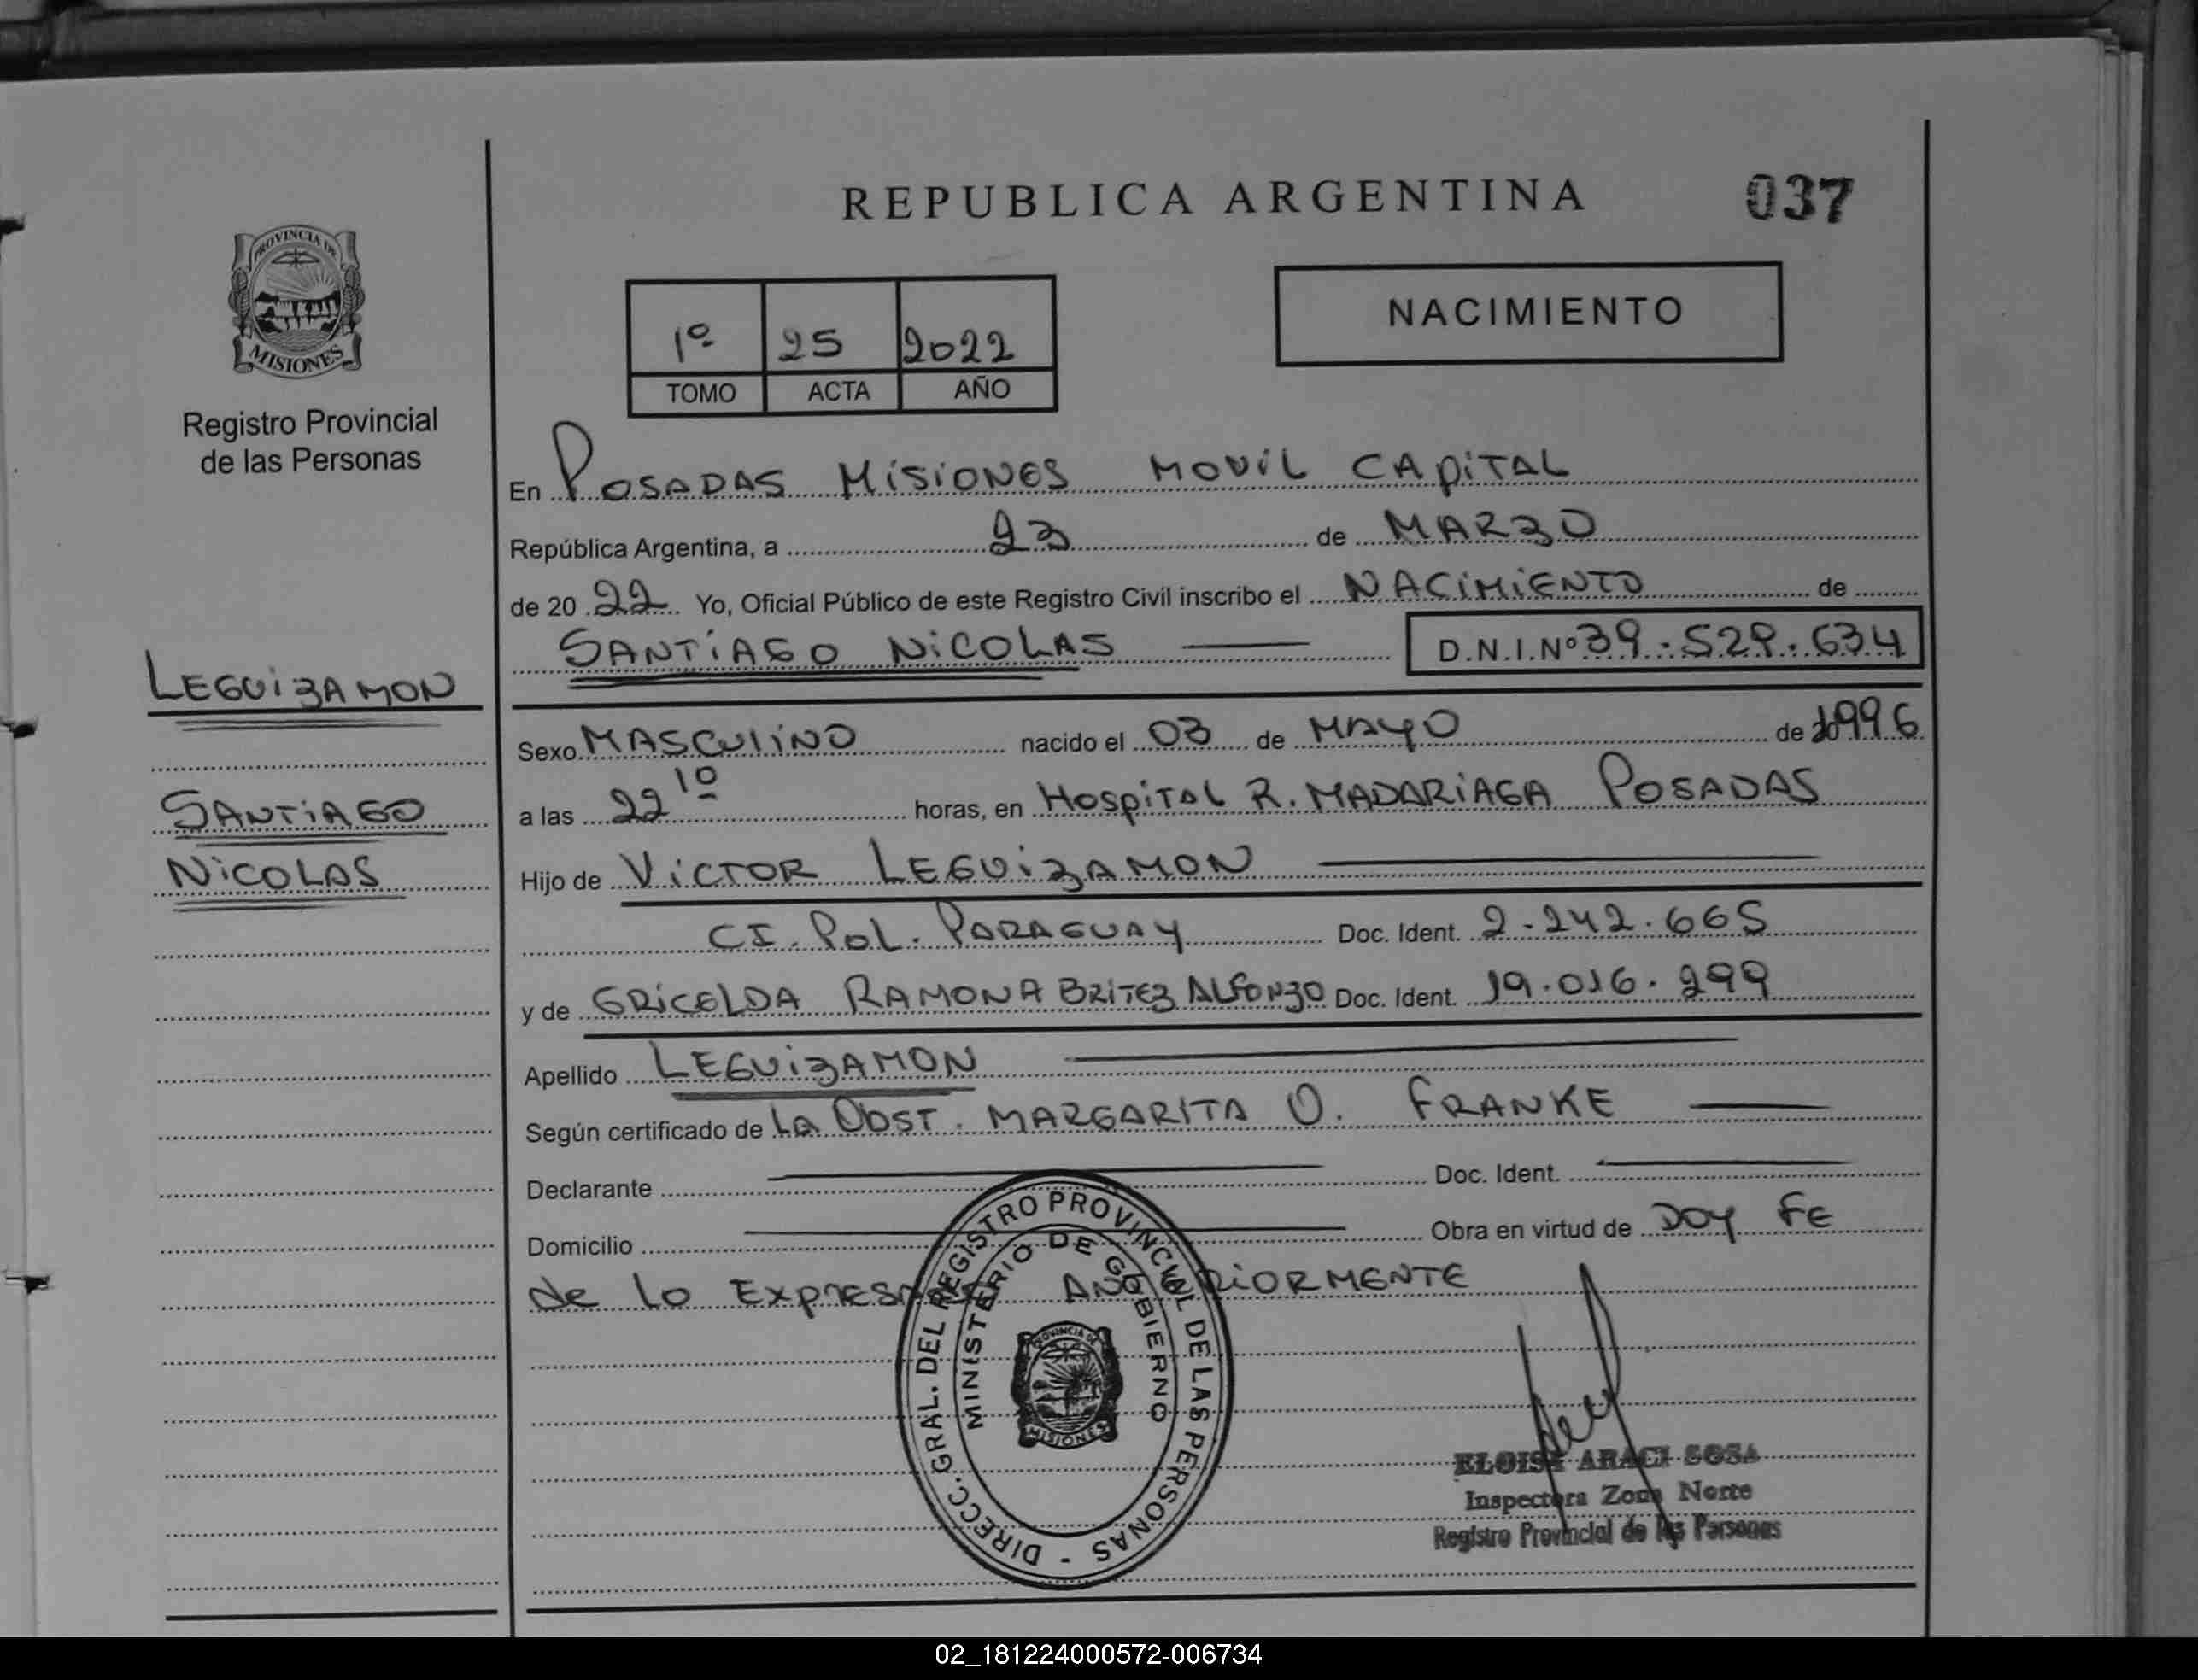 REPUBLICA ARGENTINA
037
PROVINCIA DE
MISIONES
Registro Provincial
de las Personas
1º 25 2022
TOMO ACTA AÑO
NACIMIENTO
En POSADAS MISIONES MOVIL CAPITAL
República Argentina, a 23 de MARZO
de 20 22 Yo, Oficial Público de este Registro Civil inscribo el NACIMIENTO de
SANTIAGO NICOLAS D.N.I.Nº 39.529.634
LEGUIZAMON
SANTIAGO
NICOLAS
Sexo MASCULINO nacido el 03 de MAYO de 1996
a las 22 10 horas, en HOSPITAL R. MADARIAGA POSADAS
Hijo de VICTOR LEGUIZAMON
CI. POL. PARAGUAY Doc. Ident. 2.242.665
y de GRICELDA RAMONA BRITEZ ALFONZO Doc. Ident. 19.016.299
Apellido LEGUIZAMON
Según certificado de LA OBST. MARGARITA O. FRANKE
Declarante Doc. Ident.
Domicilio Obra en virtud de DOY FE
de lo EXPRESADO ANTERIORMENTE
DIRECC. GRAL. DEL REGISTRO PROVINCIAL DE LAS PERSONAS -
MINISTERIO DE GOBIERNO
PROVINCIA DE
MISIONES
ELOISA ARACI SOSA
Inspectora Zona Norte
Registro Provincial de las Personas
02_181224000572-006734